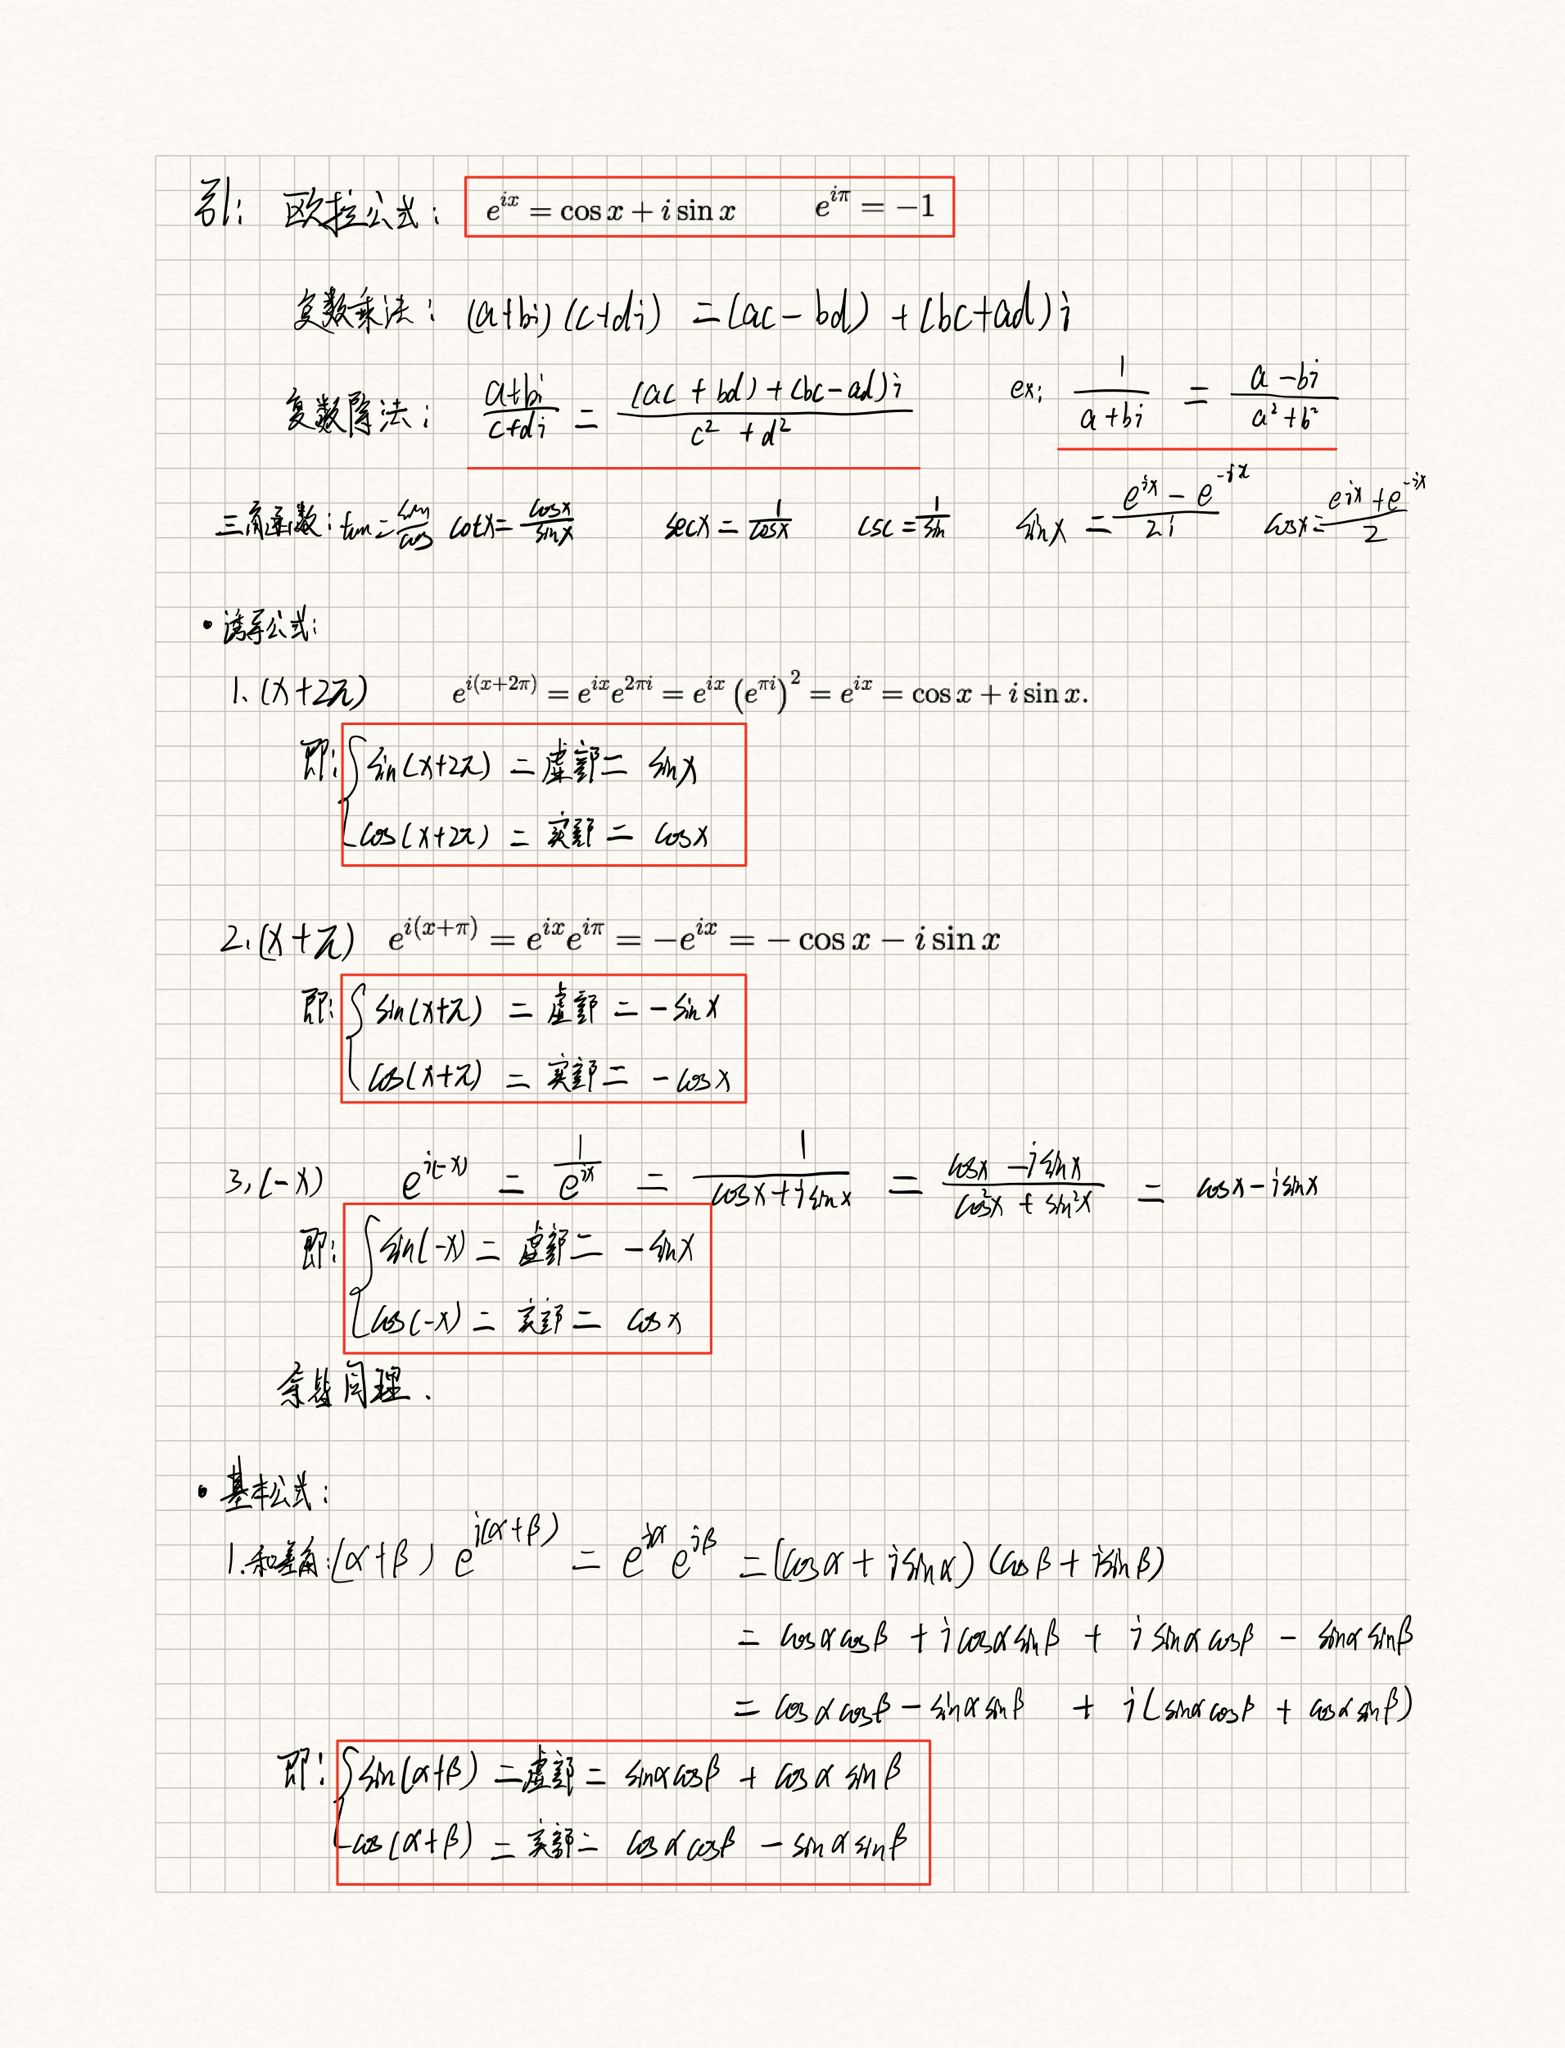 引: 欧拉公式: e^{ix} = cos x + i sin x e^{iπ} = −1
复数乘法: (a+bi)(c+di) = (ac−bd) + (bc+ad)i
复数除法: \frac{a+bi}{c+di} = \frac{(ac+bd)+(bc−ad)i}{c²+d²} ex: \frac{1}{a+bi} = \frac{a−bi}{a²+b²}
三角函数: tan = \frac{sin}{cos} cotx = \frac{cosx}{sinx} secx = \frac{1}{cosx} csc = \frac{1}{sin} sinx = \frac{e^{ix}−e^{−ix}}{2i} cosx = \frac{e^{ix}+e^{−ix}}{2}
• 诱导公式:
1. (x+2π) e^{i(x+2π)} = e^{ix}e^{2πi} = e^{ix}(e^{πi})^2 = e^{ix} = cos x + i sin x.
即: { sin(x+2π) = 虚部 = sinx
cos(x+2π) = 实部 = cosx
2. (x+π) e^{i(x+π)} = e^{ix}e^{iπ} = −e^{ix} = − cos x − i sin x
即: { sin(x+π) = 虚部 = −sinx
cos(x+π) = 实部 = −cosx
3, (−x) e^{i(−x)} = \frac{1}{e^{ix}} = \frac{1}{cosx+isinx} = \frac{cosx−isinx}{cos²x+sin²x} = cosx−isinx
即: { sin(−x) = 虚部 = −sinx
cos(−x) = 实部 = cosx
余皆同理.
• 基本公式:
1. 和差角: (α+β) e^{i(α+β)} = e^{iα}e^{iβ} = (cosα + isinα)(cosβ + isinβ)
= cosαcosβ + icosαsinβ + isinαcosβ − sinαsinβ
= cosαcosβ − sinαsinβ + i(sinαcosβ + cosαsinβ)
即: { sin(α+β) = 虚部 = sinαcosβ + cosαsinβ
cos(α+β) = 实部 = cosαcosβ − sinαsinβ